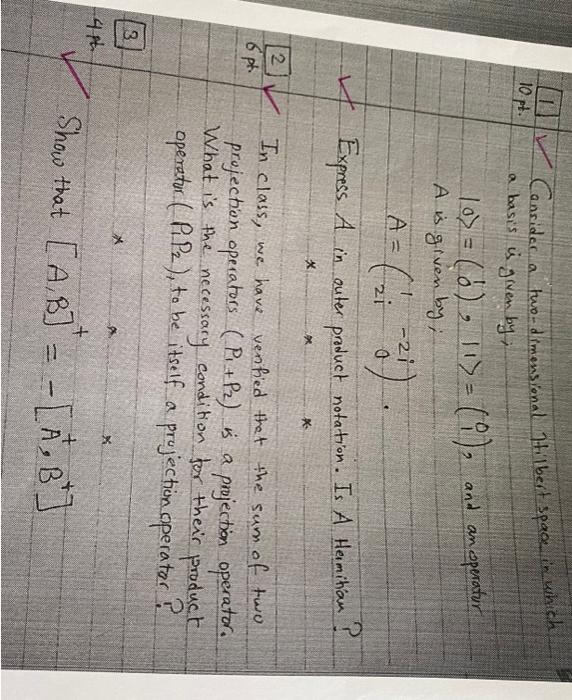 1 Consider a two-dimensional Hilbert space in which
10 pt. a basis is given by;
|0> = (1 0), |1> = (0 1), and an operator
A is given by;
A = (1 -2i
2i 0).
Express A in outer product notation. Is A Hermitian?
* * *
2 In class, we have verified that the sum of two
6 pt. projection operators (P1+P2) is a projection operator.
What is the necessary condition for their product
operator (P1P2), to be itself a projection operator?
* * *
3
4 pt.
Show that [A,B]† = -[A†,B†]